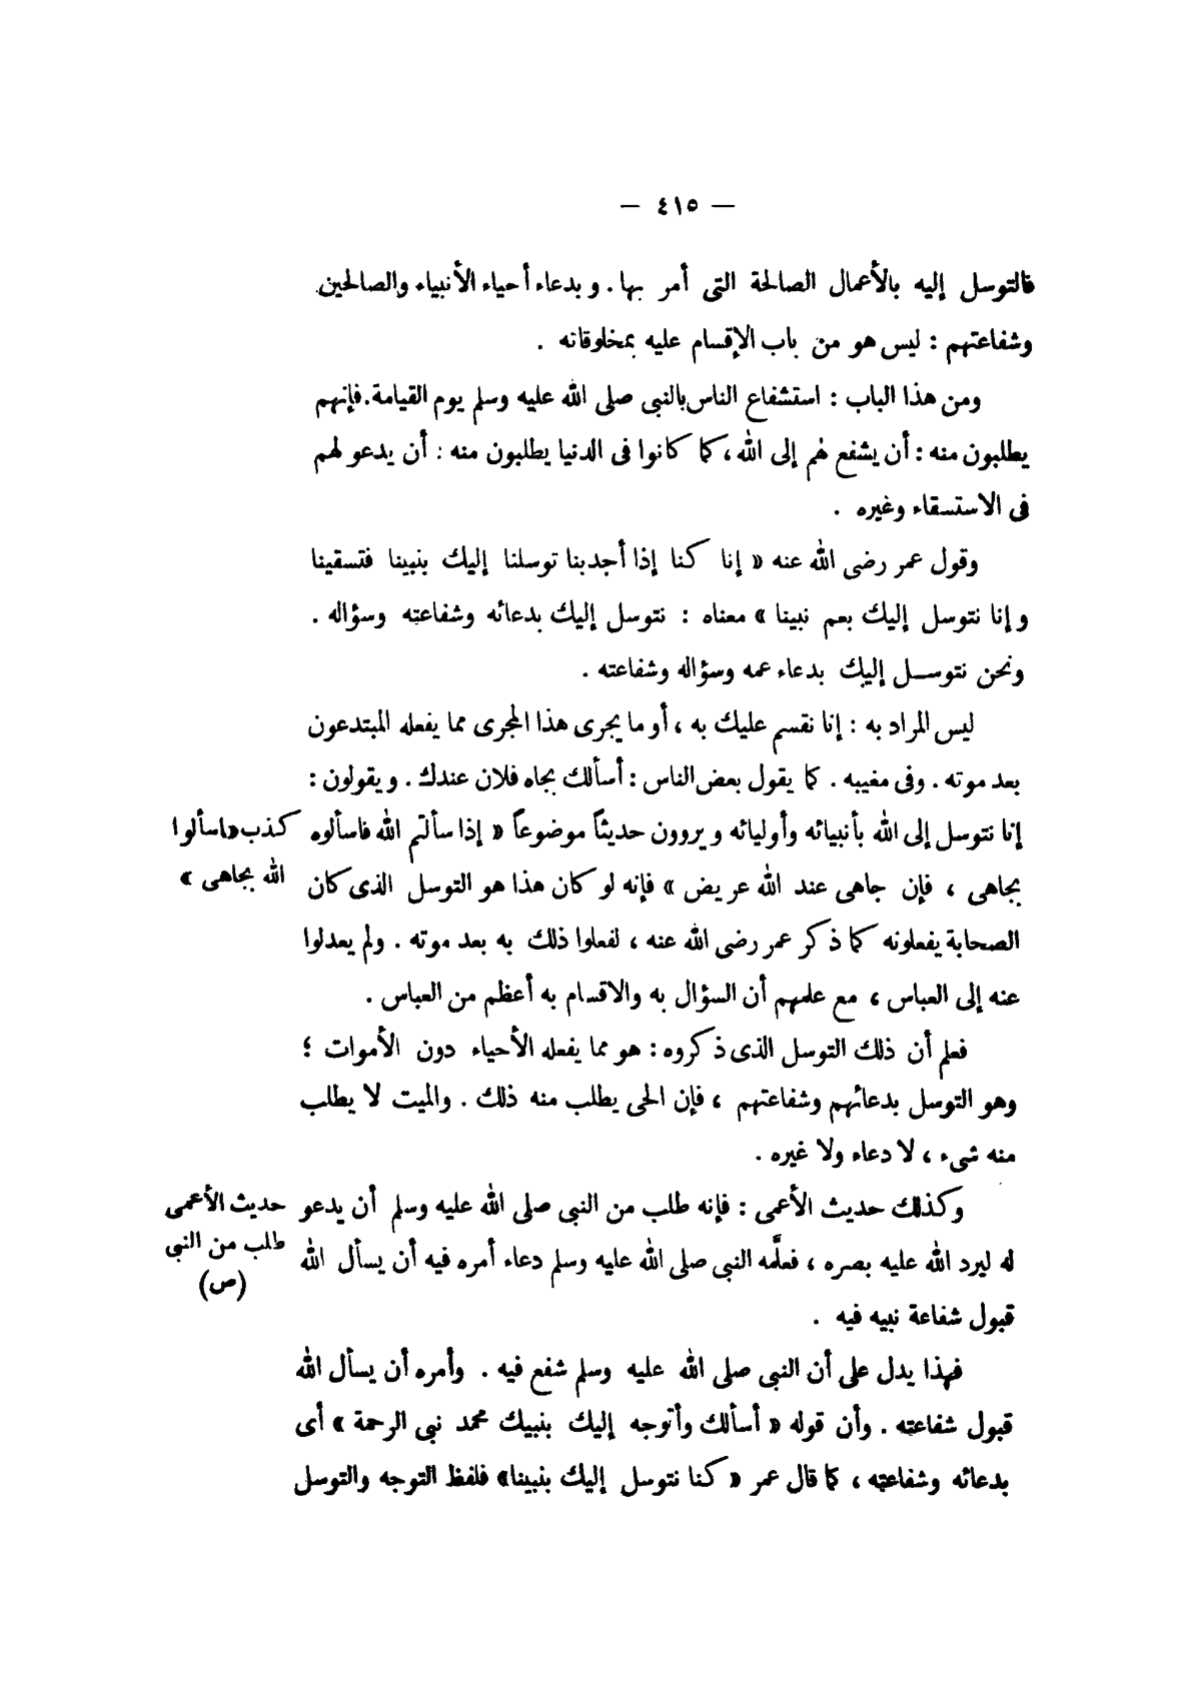 — ٤١٥ —
فالتوسل إليه بالأعمال الصالحة التى أمر بها. وبدعاء أحياء الأنبياء والصالحين
وشفاعتهم : ليس هو من باب الإقسام عليه بمخلوقاته .
ومن هذا الباب : استشفاع الناس بالنبى صلى الله عليه وسلم يوم القيامة. فإنهم
يطلبون منه : أن يشفع لهم إلى الله ، كما كانوا فى الدنيا يطلبون منه : أن يدعو لهم
فى الاستسقاء وغيره .
وقول عمر رضى الله عنه « إنا كنا إذا أجدبنا توسلنا إليك بنبينا فتسقينا
وإنا نتوسل إليك بعم نبينا » معناه : نتوسل إليك بدعائه وشفاعته وسؤاله .
ونحن نتوسل إليك بدعاء عمه وسؤاله وشفاعته .
ليس المراد به : إنا نقسم عليك به ، أو ما يجرى هذا المجرى مما يفعله المبتدعون
بعد موته . وفى مغيبه . كما يقول بعض الناس : أسألك بجاه فلان عندك . ويقولون :
إنا نتوسل إلى الله بأنبيائه وأوليائه ويروون حديثاً موضوعاً « إذا سألتم الله فاسألوه
بجاهى ، فإن جاهى عند الله عريض » فإنه لو كان هذا هو التوسل الذى كان
الصحابة يفعلونه كما ذكر عمر رضى الله عنه ، لفعلوا ذلك به بعد موته . ولم يعدلوا
عنه إلى العباس ، مع علمهم أن السؤال به والاقسام به أعظم من العباس .
فعلم أن ذلك التوسل الذى ذكروه : هو مما يفعله الأحياء دون الأموات ؛
وهو التوسل بدعائهم وشفاعتهم ، فإن الحى يطلب منه ذلك . والميت لا يطلب
منه شىء ، لا دعاء ولا غيره .
وكذلك حديث الأعمى : فإنه طلب من النبى صلى الله عليه وسلم أن يدعو
له ليرد الله عليه بصره ، فعلَّمه النبى صلى الله عليه وسلم دعاء أمره فيه أن يسأل الله
قبول شفاعة نبيه فيه .
فهذا يدل على أن النبى صلى الله عليه وسلم شفع فيه . وأمره أن يسأل الله
قبول شفاعته . وأن قوله « أسألك وأتوجه إليك بنبيك محمد نبى الرحمة » أى
بدعائه وشفاعته ، كما قال عمر « كنا نتوسل إليك بنبينا» فلفظ التوجه والتوسل
كذب «اسألوا
الله بجاهى »
حديث الأعمى
طلب من النبى
(ص)